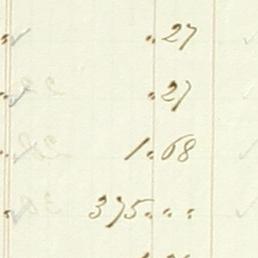 " 27
" 27
1. 68
375. " "